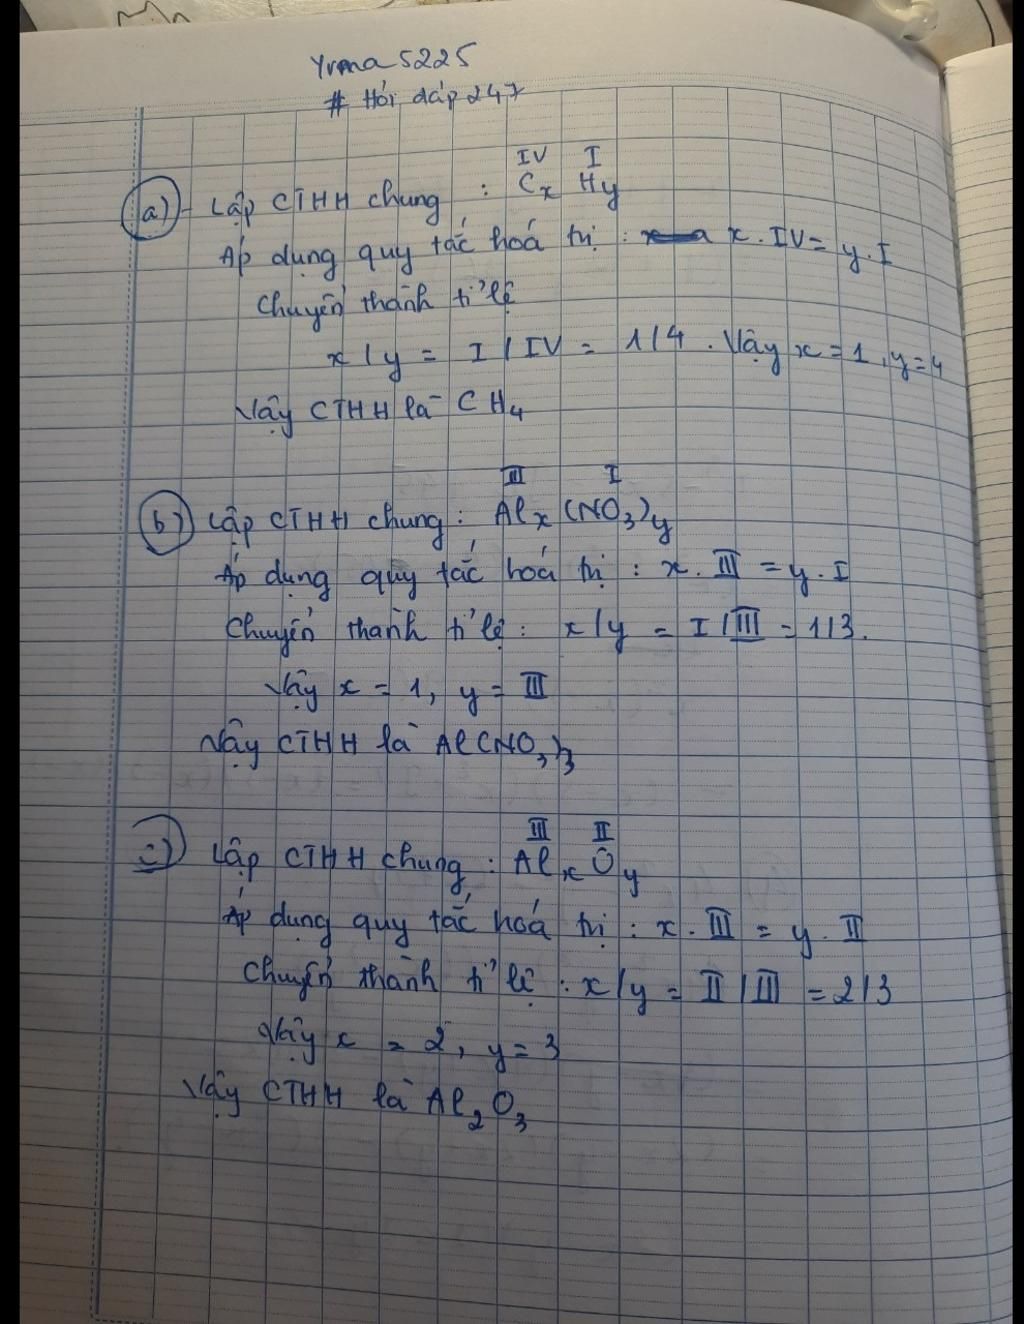 Yrma 5225
# Hỏi đáp 247
IV I
a) - Lập CTHH chung : CₓHy
Áp dụng quy tắc hoá trị : x . IV = y . I
Chuyển thành tỉ lệ
x / y = I / IV = 1/4 . Vậy x = 1, y = 4
Vậy CTHH là CH₄
III I
b) Lập CTHH chung : Alₓ(NO₃)y
Áp dụng quy tắc hoá trị : x . III = y . I
Chuyển thành tỉ lệ : x/y = I / III = 1/3.
Vậy x = 1, y = III
Vậy CTHH là Al(NO₃)₃
III II
c) Lập CTHH chung : AlₓOy
Áp dụng quy tắc hoá trị : x . III = y . II
Chuyển thành tỉ lệ : x/y = II / III = 2/3
Vậy x = 2, y = 3
Vậy CTHH là Al₂O₃